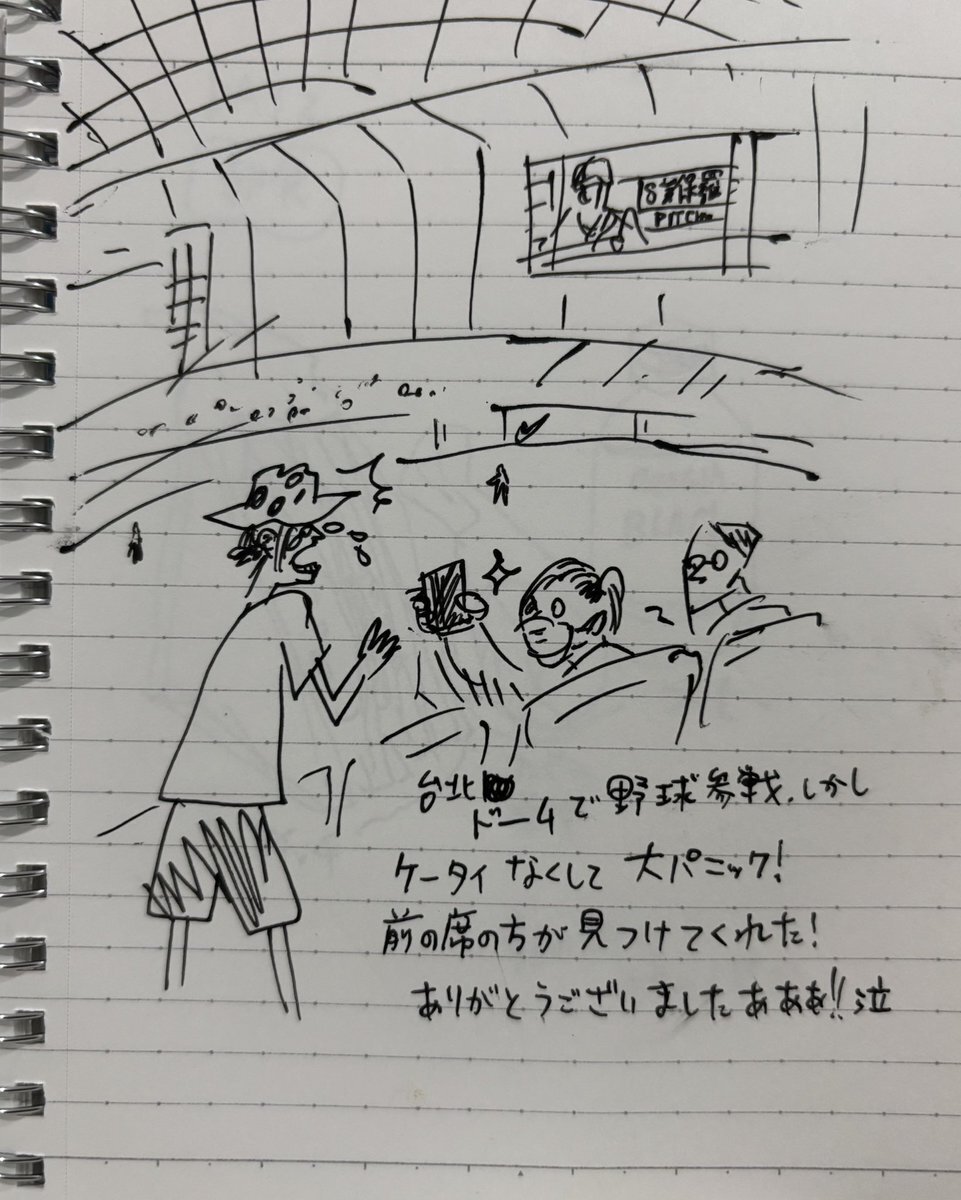 PITCHER
台北
ドームで野球参戦、しかし
ケータイなくして大パニック!
前の席の方が見つけてくれた!
ありがとうございましたあああ!!泣